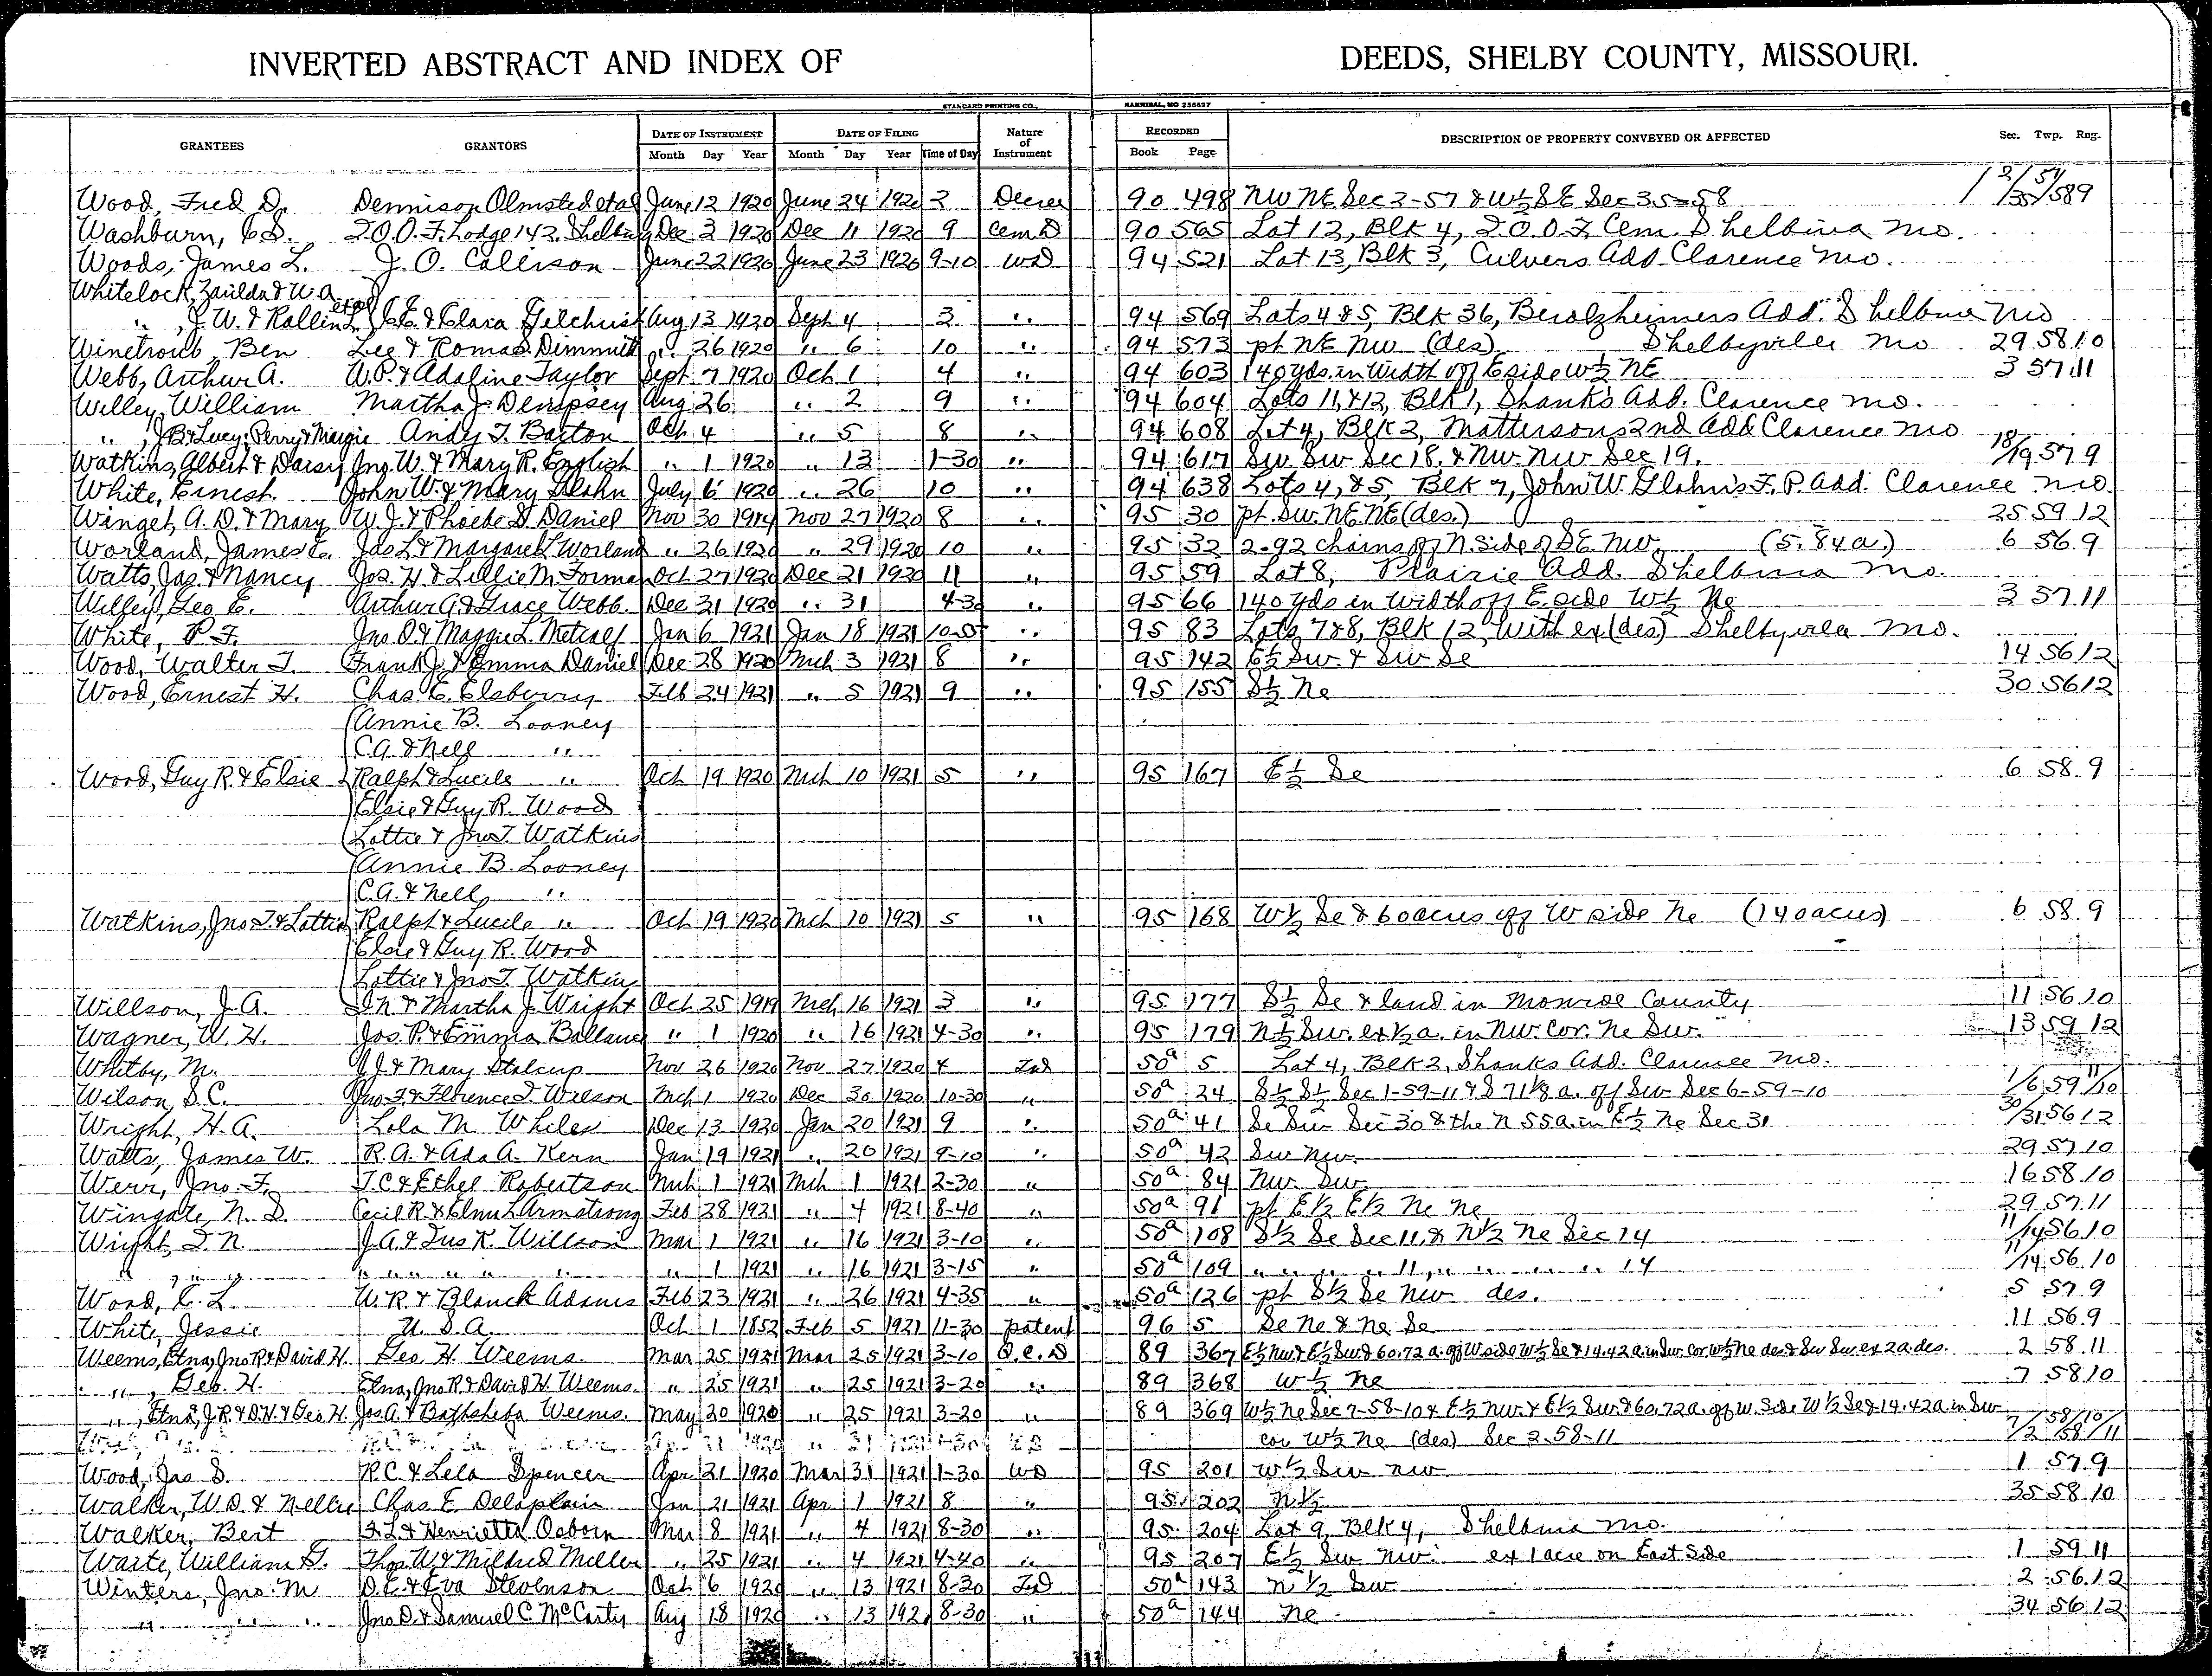 INVERTED ABSTRACT AND INDEX OF DEEDS, SHELBY COUNTY, MISSOURI.
STANDARD PRINTING CO., HANNIBAL, MO 256697
GRANTEES GRANTORS DATE OF INSTRUMENT DATE OF FILING Nature of Instrument RECORDED DESCRIPTION OF PROPERTY CONVEYED OR AFFECTED Sec. Twp. Rng.
Month Day Year Month Day Year Time of Day Book Page
Wood, Fred D. Dennison Olmsted etal June 12 1920 June 24 1920 2 Decree 90 498 NW NE Sec 2-57 & W½ SE Sec 35-58 2/35 57/58 9
Washburn, C.S. I.O.O.F. Lodge 142, Shelbina Dec 2 1920 Dec 11 1920 9 Cem D 90 565 Lot 12, Blk 4, I.O.O.F. Cem. Shelbina Mo.
Woods, James L. J. O. Collison June 22 1920 June 23 1920 9-10 WD 94 521 Lot 13, Blk 3, Culvers Add Clarence Mo.
Whitelock, Zarilda & W.A.
" , J. W. & Rollin L. etal C.E. & Clara Gilchrist Aug 13 1920 Sept 4 3 " 94 569 Lots 4 & 5, Blk 36, Berolzheimers Add. Shelbina Mo
Winetroub, Ben Lee & Roma S. Dimmitt " 26 1920 " 6 10 " 94 573 pt NE NW (des) Shelbyville Mo 29 58 10
Webb, Arthur A. W.P. & Adaline Taylor Sept 7 1920 Oct 1 4 " 94 603 140 yds. in width off E side W½ NE 3 57 11
Willey, William Martha J. Dempsey Aug 26 " 2 9 " 94 604 Lots 11, & 12, Blk 1, Shanks Add. Clarence Mo.
" , J.B. & Lucy; Perry & Margie Andy T. Barton Oct 4 " 5 8 " 94 608 Lot 4, Blk 2, Mattersons 2nd Add Clarence Mo
Watkins, Albert & Daisy Jno. W. & Mary R. English " 1 1920 " 13 1-30 " 94 617 SW SW Sec 18, & NW. NW Sec 19. 18/19 57 9
White, Ernest John W. & Mary Glahn July 6 1920 " 26 10 " 94 638 Lots 4, & 5, Blk 7, John W. Glahn's F.P. Add. Clarence Mo.
Winget, A. D. & Mary W. J. & Phoebe D Daniel Nov 30 1914 Nov 27 1920 8 " 95 30 pt. SW. NE NE (des.) 25 59 12
Worland, James E. Jas L & Margaret L Worland " 26 1920 " 29 1920 10 " 95 32 2.92 chains off N. side of SE. NW. (5.84 a.) 6 56 9
Watts, Jas. & Nancy Jos. H & Lillie M. Forman Oct 27 1920 Dec 21 1920 11 " 95 59 Lot 8, Prairie Add. Shelbina Mo.
Willey, Geo E. Arthur A. & Grace Webb. Dec 31 1920 " 31 4-30 " 95 66 140 yds in width off E. side W½ Ne 3 57 11
White, P. F. Jno. O. & Maggie L. Metcalf Jan 6 1921 Jan 18 1921 10-5 " 95 83 Lots 7 & 8, Blk 12, with ex (des) Shelbyville Mo.
Wood, Walter T. Frank J. & Emma Daniel Dec 28 1920 Mch 3 1921 8 " 95 142 E½ Sw. & Sw Se 14 56 12
Wood, Ernest H. Chas. E. Elsberry Feb 24 1921 " 5 1921 9 " 95 155 S½ Ne 30 56 12
Annie B. Looney
C.A. & Nell "
Wood, Guy R. & Elsie Ralph & Lucile " Oct 19 1920 Mch 10 1921 5 " 95 167 E½ Se 6 58 9
Elsie & Guy R. Wood
Lottie & Jno T. Watkins
Annie B. Looney
C.A. & Nell "
Watkins, Jno. T. & Lottie Ralph & Lucile " Oct 19 1920 Mch 10 1921 5 " 95 168 W½ Se & 60 acres off W side Ne (140 acres) 6 58 9
Elsie & Guy R. Wood
Lottie & Jno T. Watkins
Willson, J. A. I.N. & Martha J. Wright Oct 25 1919 Mch 16 1921 3 " 95 177 S½ Se & land in Monroe County 11 56 10
Wagner, W. H. Jos. P. & Emma Ballance " 1 1920 " 16 1921 4-30 " 95 179 N½ Sw. ex ½ a. in Nw. Cor. Ne Sw. 13 59 12
Whitby, M. J & Mary Stalcup Nov 26 1920 Nov 27 1920 4 50a 5 Lot 4, Blk 2, Shanks Add. Clarence Mo.
Wilson, S.C. Jno. F. & Florence Wilson Mch 1 1920 Dec 30 1920 10-30 " 50a 24 S½ S½ Sec 1-59-11 & S 71⅛ a. off Sw Sec 6-59-10 1/6 59 11/10
Wright, H. A. Lola M. Whiles Dec 13 1920 Jan 20 1921 9 " 50a 41 Se Sw Sec 30 & the N 55 a. in E½ Ne Sec 31 30/31 56 12
Watts, James W. R. A. & Ada A. Kern Jan 19 1921 " 20 1921 9-10 " 50a 42 Sw Nw. 29 57 10
Werr, Jno. F. T.C & Ethel Robertson Mch 1 1921 Mch 1 1921 2-30 " 50a 84 Nw. Sw 16 58 10
Wingate, N. D. Cecil R. & Armstrong Feb 28 1921 " 4 1921 8-40 " 50a 91 pt E½ E½ Ne Ne 29 57 11
Wright, I. N. J. A. & K. Willson Mar 1 1921 " 16 1921 3-10 " 50a 108 S½ Se Sec 11, & N½ Ne Sec 14 11/14 56 10
" " " " " " " " " " 1 1921 " 16 1921 3-15 " 50a 109 " " " " 11, " " " " " 14 11/14 56 10
Wood, C. L. W. R. & Blanch Adams Feb 23 1921 " 26 1921 4-35 " 50a 126 pt S½ Se Nw des. 5 57 9
White, Jessie U. S. A. Oct 1 1852 Feb 5 1921 11-30 patent 96 5 Se Ne & Ne Se 11 56 9
Weems, Etna, Jno R & David H. Geo. H. Weems. Mar 25 1921 Mar 25 1921 3-10 Q.C.D 89 367 E½ Nw & E½ Sw & 60.72 a. off W side W½ Se & 14.42 a. in Sw. cor. W½ Ne des & Sw Sw ex 2 a. des. 2 58 11
" , Geo. H. Etna, Jno R. & David H. Weems. " 25 1921 " 25 1921 3-20 " 89 368 W½ Ne 7 58 10
" , Etna, J.R. & D.H. & Geo H. Jos. A. & Bathsheba Weems. May 20 1920 " 25 1921 3-20 " 89 369 W½ Ne Sec 7-58-10 & E½ Nw. & E½ Sw. & 60.72 a. off W. side W½ Se & 14.42 a. in Sw
cor W½ Ne (des) Sec 2-58-11 7/2 58/58 10/11
Wood, Jas S. R.C. & Lela Spencer Apr 21 1920 Mar 31 1921 1-30 WD 95 201 W½ Sw Nw 1 57 9
Walker, W.D. & Nellie Chas E Delaplain Jan 21 1921 Apr 1 1921 8 " 95 202 N½ 35 58 10
Walker, Bert F. L. & Henrietta Osborn Mar 8 1921 " 4 1921 8-30 " 95 204 Lot 9, Blk 4, Shelbina Mo.
Waite, William G. Thos W. & Mildred Miller " 25 1921 " 4 1921 4-40 " 95 207 E½ Sw Nw. ex 1 acre on East Side 1 59 11
Winters, Jno. M D. E. & Eva Stevenson Oct 6 1920 " 13 1921 8-30 50a 143 N½ Sw 2 56 12
" " " Jno. D. & Samuel C. McCarty Aug 18 1920 " 13 1921 8-30 " 50a 144 Ne 34 56 12